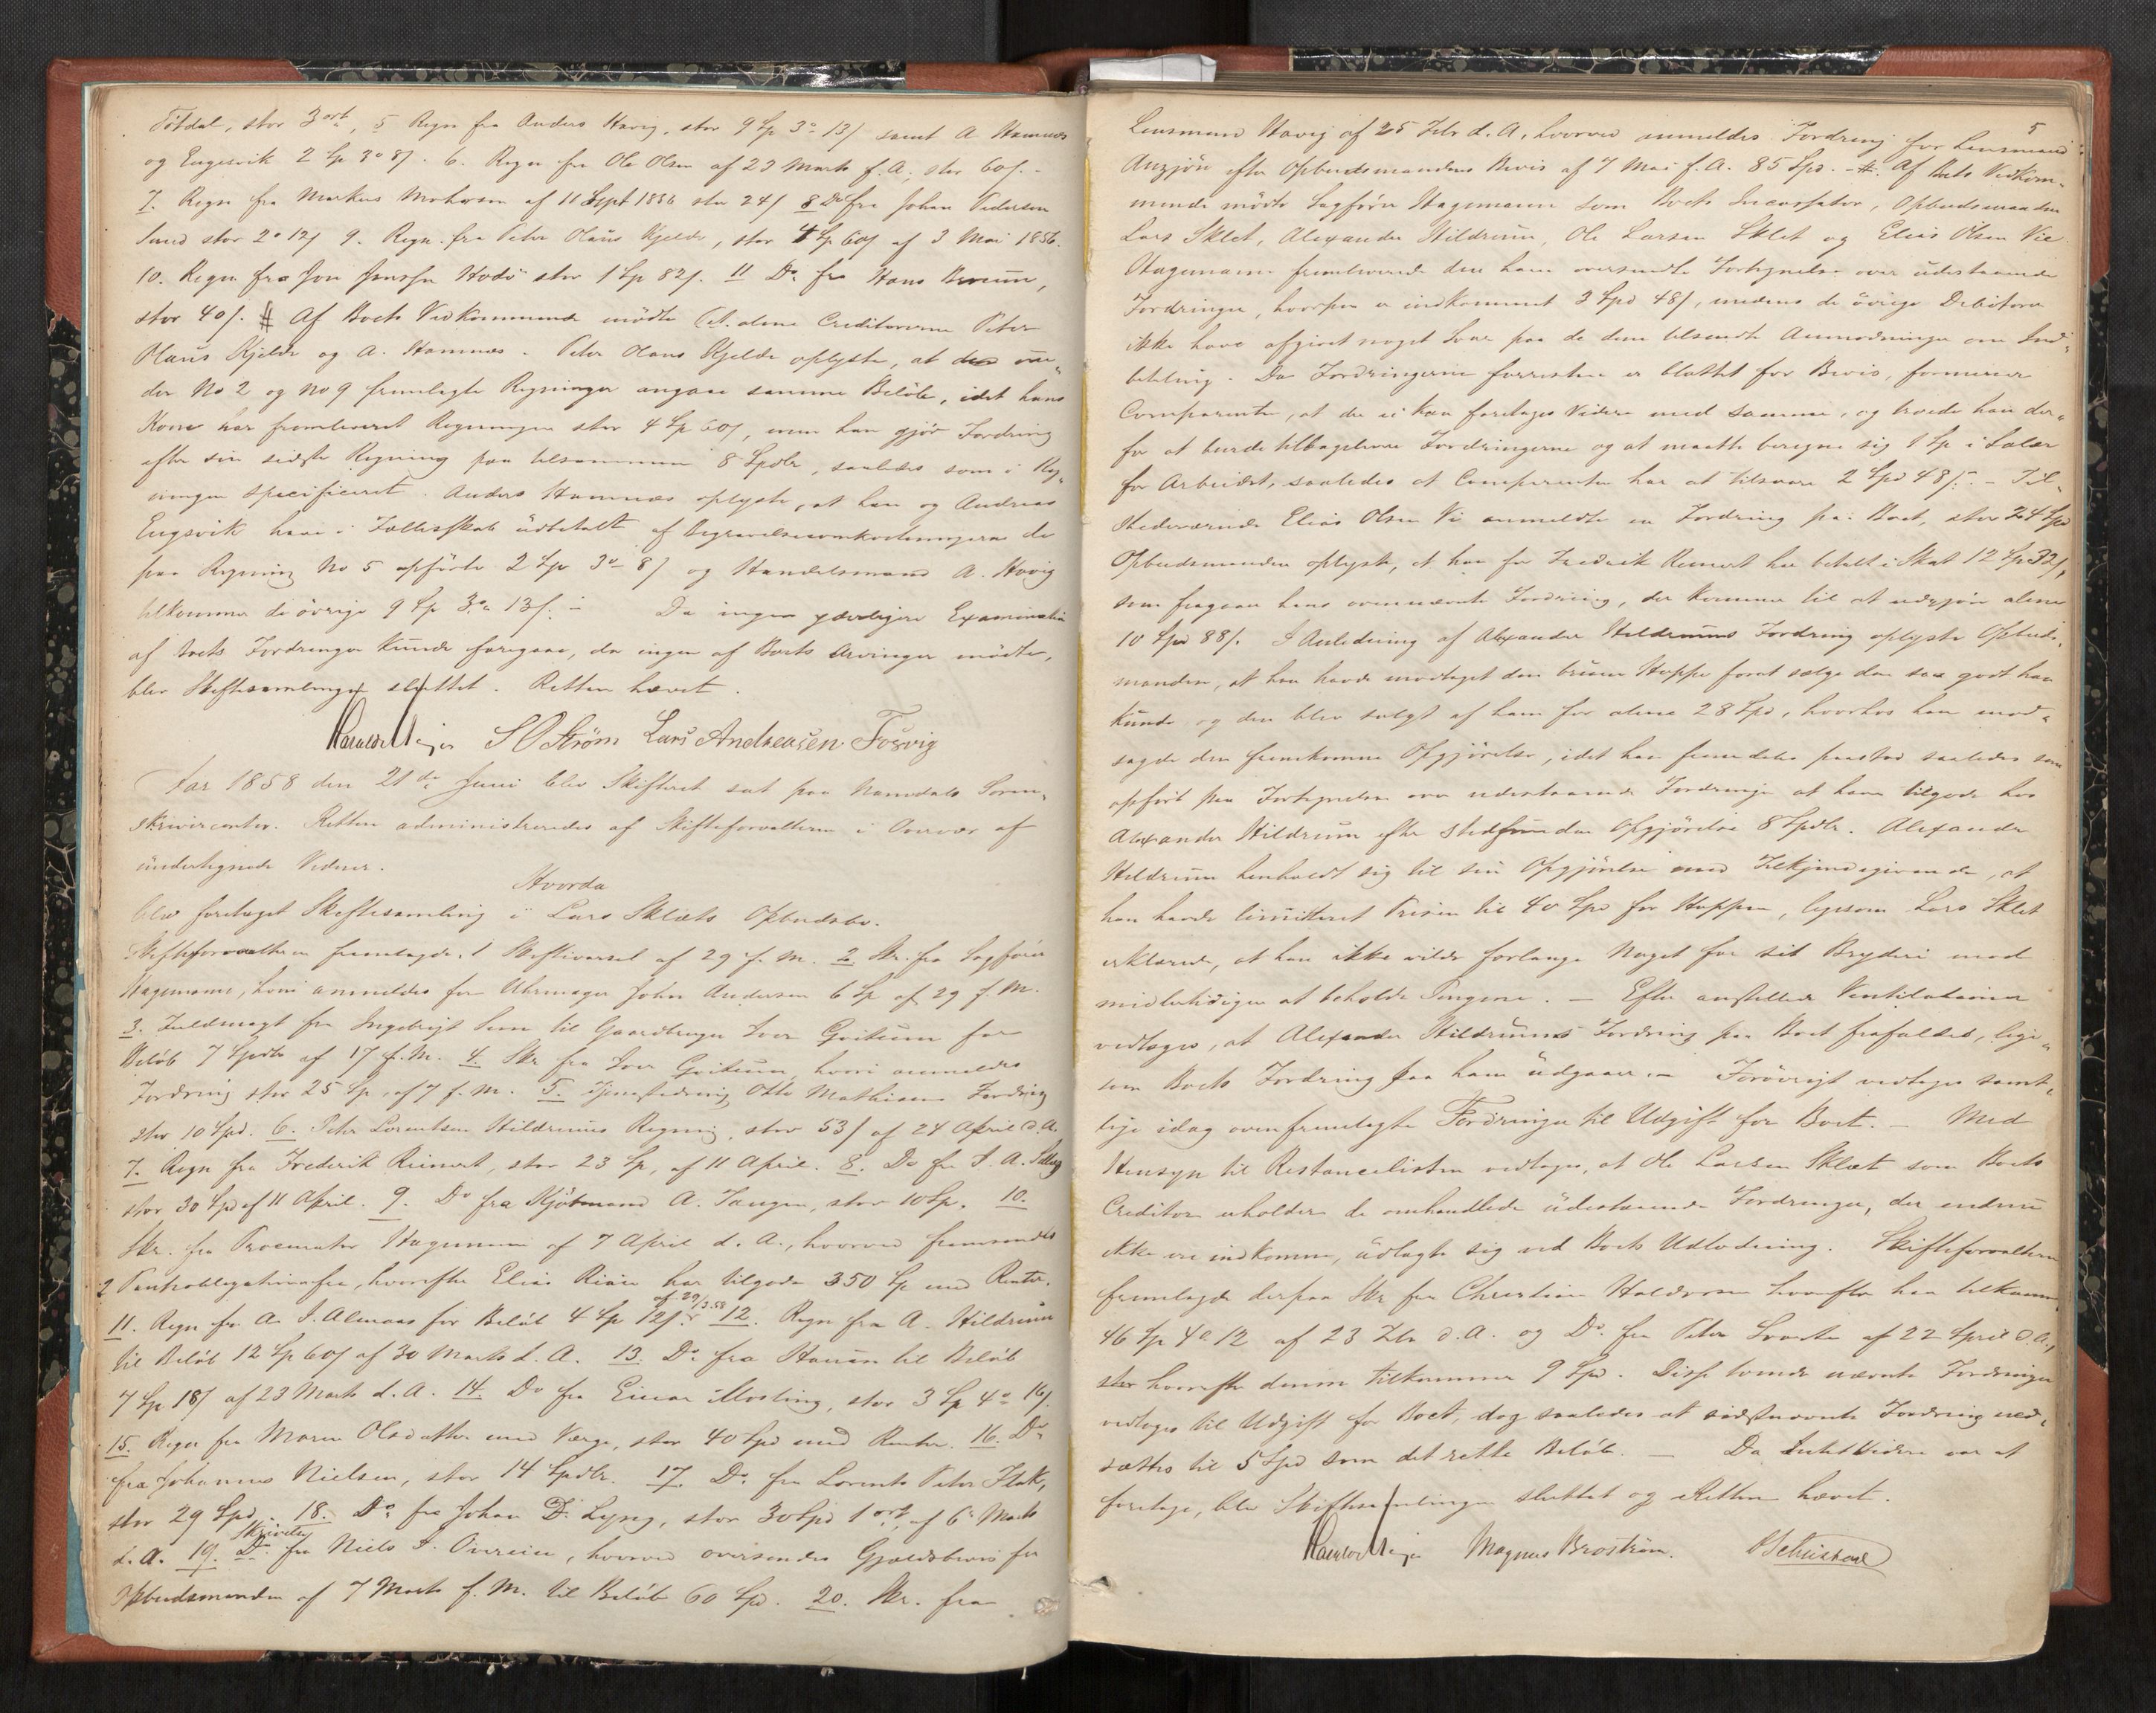 Totdal, stor 3 ort, 5 Regn fra Anders Havig, stor 9 Sp 3o 13/ samt A Hamnæs
og Engesvik 2 Sp 3o 8/. 6. Regn fra Ole Olsen af 23 Marts f. A. stor 60/. -
7. Regn fra Markus af 11 Sept 1856 stor 24/ 8 Do fra Johan Pedersen
Sund stor 2o 12/ 9. Regn. fra Peter Olaus Kjelde, stor 4 Sp 60/ af 3 Mai 1856.
10. Regn fra Jon Jenssen Hodö stor 1 Sp 82/. 11 Do fra Hans
stor 40/. # Af Boets Vedkommende mödte alene Creditorerne Peter
Olaus Kjelde og A. Hamnæs. Peter Olaus Kjelde oplyste, at de un-
der No 2 og No 9 fremlagte Regninger angaae samme Beløb, idet hans
Kone har fremleveret Regningen stor 4 Sp 60/, men han gjör Fordring
efter sin sidste Regning paa tilsammen 8 Spdlr, saaledes som i Reg-
ningen specificeret. Anders Hamnæs oplyste, at han og Andreas
Engsvik have i Fællesskab udbetalt af Begravelsesomkostningerne de
paa Regning No 5 opförte 2 Sp 3o 8/ og Handelsmand A. Havig
tilkommer de övrige 9 Sp 3o 13/. - Da ingen yderligere Examination
af Boets Fordringer kunde foregaae, da ingen af Boets Arvinger mödte,
blev Skiftesamlingen sluttet. Retten hævet.
S O Strøm Lars Andreasen Fosvig
Aar 1858 den 21de Juni blev Skifteret sat paa Namdals Soren-
skrivercontor. Retten administreredes af Skifteforvalteren i Overvær af
undertegnede Vidner.
Hvorda
blev foretaget Skiftesamling i Lars Sklets Opbudsbo.
Skifteforvalteren fremlagde, 1 Skiftevarsel af 29 f. M. 2 Skr. fra Sagförer
Hagemann, hvori anmeldes for Uhrmager John Andersen 6 Sp af 29 f. M.
3. Fuldmagt fra Ingebrigt til Gaardbruger Iver for
Beløb 7 Spdlr af 17 f. M. 4. Skr fra Iver hvori anmeldes
Fordring stor 25 Sp, af 7 f. M. 5. Otto Mathisens Fordring
stor 10 Spd. 6. Peter Lorentsen Hildrums Regning, stor 53/ af 24 April d. A.
7. Regn fra Frederik Reinert, stor 23 Sp, af 11 April. 8. Do fra
stor 30 Spd af 11 April. 9. Do fra Kjöbmand A. Tangen, stor 10 Sp. 10.
Skr. fra Procurator Hagemann af 7 April d. A., hvorved fremsendes
2 Pantobligationer, hvorefter Elias har tilgode 350 Sp med Renter.
11. Regn fra A. J. Almaas for Beløb 4 Sp 12/. af 29/3.58 12. Regn fra A. Hildrum
til Beløb 12 Sp 60/ af 30 Marts d. A. 13. Do fra til Beløb
7 Sp 18/ af 23 Marts d. A. 14. Do fra Einar Mosling, stor 3 Sp 4o 16/.
15. Regn fra Maren Olsdatter med Værge, stor 40 Spd med Renter. 16. Do
fra Johannes Nielsen, stor 14 Spdlr. 17. Do fra Lorents Peter Flak,
stor 29 Spd. 18. Do fra Johan D. Lyng, stor 30 Spd 1 ort, af 6 Marts
d. A. 19. Do Skrivelse fra Niels J. Overeien, hvorved oversendes Gjældsbevis fra
Opbudsmanden af 7 Marts f. M. til Beløb 60 Spd. 20. Skr. fra
5
Lensmand Havig af 25 Febr d. A., hvorved anmeldes Fordring for Lensmand
efter Opbudsmandens Bevis af 7 Mai f. A. 85 Spd. - #. Af Boets Vedkom-
mende mödte Sagförer Hagemann som Boets Incassator, Opbudsmanden
Lars Sklet, Alexander Hildrum, Ole Larsen Sklet og Elias Olsen Vie
Hagemann fremleverede den ham oversendte Fortegnelse over udestaaende
Fordringer, hvorpaa er indkommet 3 Spd 48/, medens de övrige Debitorer
ikke have afgivet noget Svar paa de dem tilsendte Anmodninger om Ind-
betaling. Da Fordringerne forresten er blottet for Bevis, formener
Comparenten, at der ei kan foretages videre med samme, og troede han der-
for at burde tilbagelevere Fordringerne og at maatte beregne sig 1 Sp i Salær
for Arbeidet, saaledes at Comparenten har at tilsvare 2 Spd 48/. - Til-
stedeværende Elias Olsen Vi anmeldte en Fordring paa Boet, stor 24 Spd
Opbudsmanden oplyste, at han for Frederik Reinert har betalt i Skat 12 Sp 32/,
som fragaaer hans ovennævnte Fordring, der kommer til at udgjöre alene
10 Spd 88/. I Anledning af Alexander Hildrums Fordring oplyste Opbuds-
manden, at han havde modtaget den brune Hoppe forat sælge den saa godt han
kunde og den blev solgt af ham for alene 28 Spd, hvorhos han mod-
sagde den fremkomne Opgjörelse, idet han fremdeles paastod saaledes som
opfört paa Fortegnelsen over udestaaende Fordringer at have tilgode hos
Alexander Hildrum efter stedfunden Opgjörelse 8 Spdlr. Alexander
Hildrum henholdt sig til sin Opgjörelse med Tilkjendegivende, at
han havde limitteret Prisen til 40 Spd for Hoppen, ligesom Lars Sklet
erklærede, at han ikke vilde forlange Noget for sit Bryderi mod
midlertidigen at beholde Pengene. - Efter anstillede Ventilationer
vedtoges, at Alexander Hildrums Fordring paa Boet frafaldes, lige-
som Boets Fordring paa ham udgaaer. - Forövrigt vedtoges samt-
lige idag ovenfremlagte Fordringer til Udgift for Boet. - Med
Hensyn til Restancelisten vedtoges, at Ole Larsen Sklæt som Boets
Creditor erholder de omhandlede udestaaende Fordringer, der endnu
ikke ere indkomne, udlagte sig ved Boets Udlodning. Skifteforvalteren
fremlagde derpaa Skr fra Christian Haldorsen hvorefter han tilkommer
46 Sp 4o 12 af 23 Febr d. A. og Do. fra Peter af 22 April d. A.,
stor hvorefter denne tilkommer 9 Spd. Disse tvende nævnte Fordringer
vedtoges til Udgift for Boet, dog saaledes at sidstnævnte Fordring ned-
sættes til 5 Spd som det rette Beløb. - Da Intet Videre var at
foretage, blev Skiftesamlingen sluttet og Retten hævet.
Magnus Broström.